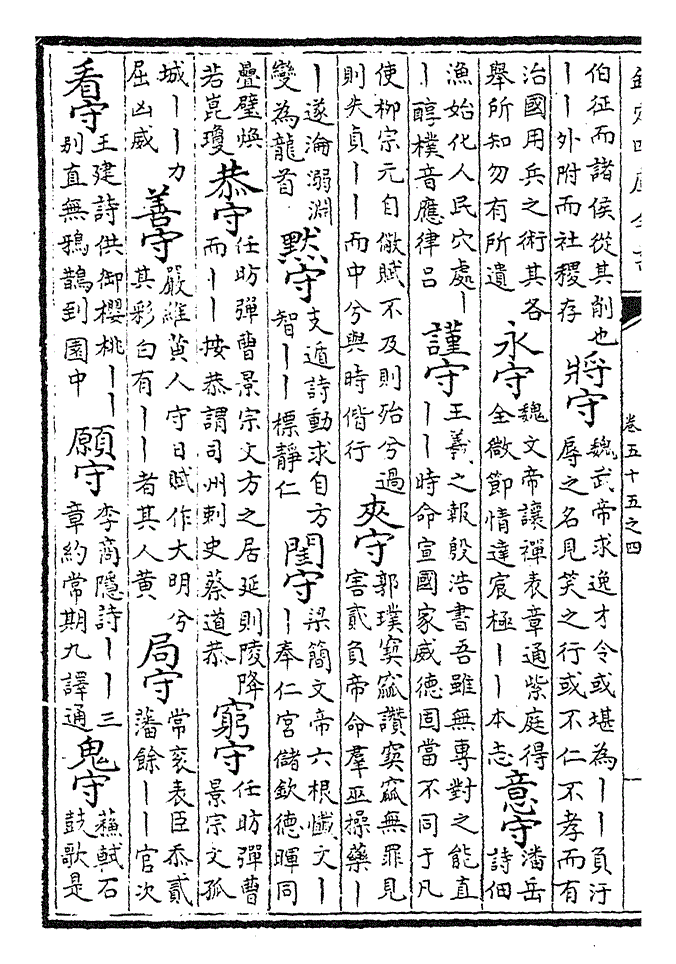 欽定四庫全書
卷五十五之四
伯征而諸侯從其削也
丨丨外附而社稷存
將守
魏武帝求逸才令或堪為丨丨負汙
辱之名見笑之行或不仁不孝而有
治國用兵之術其各
舉所知勿有所遺
永守
魏文帝讓禪表章通紫庭得
全微節情達宸極丨丨本志
意守
潘岳
詩佃
漁始化人民穴處丨
丨醇樸音應律呂
謹守
王羲之報殷浩書吾雖無專對之能直
丨丨時命宣國家威德固當不同于凡
使柳宗元自儆賦不及則殆兮過
則失貞丨丨而中兮與時偕行
夾守
郭璞窫窳讚窫窳無罪見
害貳負帝命羣巫操藥丨
丨遂淪溺淵
變為龍首
黙守
支遁詩動求自方
智丨丨標靜仁
閨守
梁簡文帝六根懺文丨
丨奉仁宮儲欽德暉同
疊璧煥
若崑瓊
恭守
任昉彈曹景宗文方之居延則陵降
而丨丨按恭謂司州刺史蔡道恭
窮守
任昉彈曹
景宗文孤
城丨丨力
屈凶威
善守
嚴維黄人守日賦作大明兮
其彩白有丨丨者其人黄
局守
常衮表臣忝貳
藩餘丨丨官次
看守
王建詩供御櫻桃丨丨
别直無鴉鵲到園中
願守
李商隱詩丨丨三
章約常期九譯通
鬼守
蘇軾石
鼓歌是